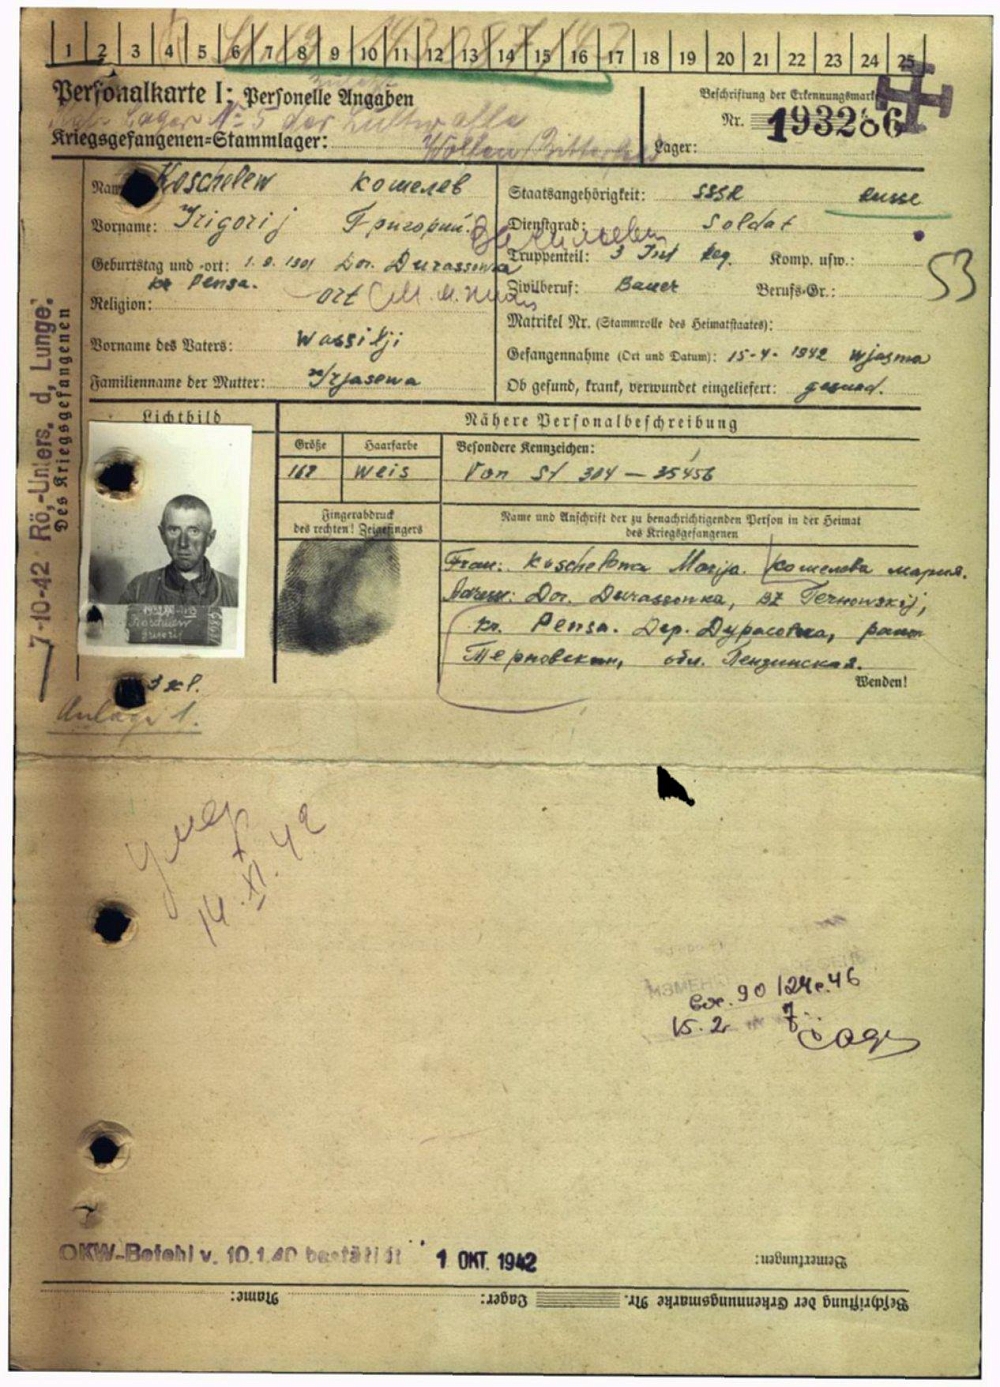 1 2 3 4 5 6 7 8 9 10 11 12 13 14 15 16 17 18 19 20 21 22 23 24 25
Personalkarte I: Personelle Angaben
Kriegsgefangenen-Stammlager: Wolfen/Bitterfeld
Beschriftung der Erkennungsmarke
Nr. 193286
Lager:
Des Kriegsgefangenen
7-10-42 Rö,-Unters, d, Lunge:
Name: Koschelew Кошелев
Vorname: Grigorij Григорий
Geburtstag und -ort: Dor. Durassowka
kr Pensa.
Religion: ort
Vorname des Vaters: Wassilji
Familienname der Mutter:
Staatsangehörigkeit: SSSR Russe
Dienstgrad: Soldat
Truppenteil: 3 Inf Reg. Komp. usw.:
53
Zivilberuf: Bauer Berufs-Gr.:
Matrikel Nr. (Stammrolle des Heimatstaates):
Gefangennahme (Ort und Datum): 15-4-1942 Wjasma
Ob gesund, krank, verwundet eingeliefert: gesund.
Lichtbild
Nähere Personalbeschreibung
Größe Haarfarbe Besondere Kennzeichen:
162 Weis Von St 304 — 35456
Fingerabdruck
des rechten! Zeigefingers
Name und Anschrift der zu benachrichtigenden Person in der Heimat
des Kriegsgefangenen
Frau: Koschelewa Marija. Кошелева Мария.
Dor. Durassowka, BZ Ternowskij,
kr. Pensa. Дер. Дурасовка, район
Терновский, обл. Пензинская.
Wenden!
Anlage 1.
умер
14.XI.42
вх. 90
15.2
OKW-Befehl v. 10.1.40 bestätigt
1 OKT. 1942
Bemerkungen:
Name: Lager: Beschriftung der Erkennungsmarke Nr.